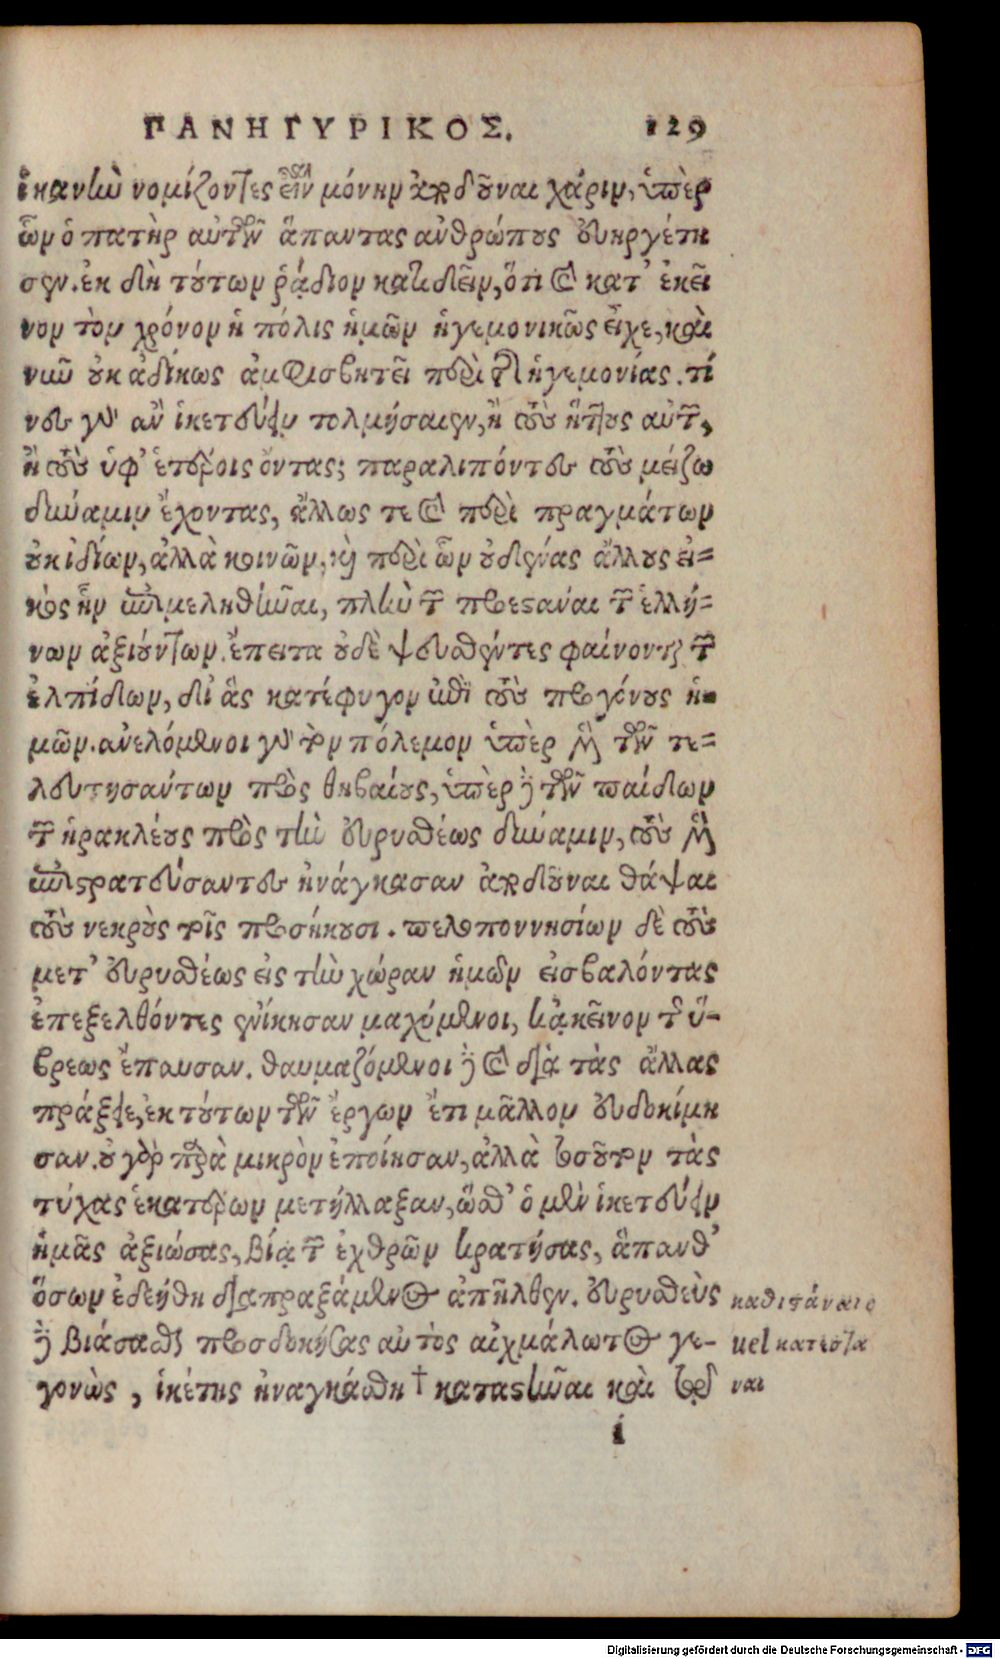 ΠΑΝΗΓΥΡΙΚΟΣ. 129
ἱκανὴν νομίζοντες εἶναι μόνην ἀποδοῦναι χάριν, ὑπὲρ
ὧν ὁ πατὴρ αὐτῶν ἅπαντας ἀνθρώπους εὐηργέτη
σεν. ἐκ δὴ τούτων ῥᾴδιον κατιδεῖν, ὅτι καὶ κατ’ ἐκεῖ
νον τὸν χρόνον ἡ πόλις ἡμῶν ἡγεμονικῶς εἶχε, καὶ
νῦν οὐκ ἀδίκως ἀμφισβητεῖ περὶ τῆς ἡγεμονίας. τί
νες γὰρ ἂν ἱκετεύειν τολμήσαιεν, ἢ τοὺς ἥττους αὐτῶν,
ἢ τοὺς ὑφ’ ἑτέροις ὄντας; παραλιπόντες τοὺς μείζω
δύναμιν ἔχοντας, ἄλλως τε καὶ περὶ πραγμάτων
οὐκ ἰδίων, ἀλλὰ κοινῶν, καὶ περὶ ὧν οὐδένας ἄλλους εἰ=
κὸς ἦν ἐπιμεληθῆναι, πλὴν τῶν προεστάναι τῶν ἑλλή=
νων ἀξιούντων. ἔπειτα οὐδὲ ψευσθέντες φαίνονται τῶν
ἐλπίδων, δι’ ἃς κατέφυγον ἐπὶ τοὺς προγόνους ἡ=
μῶν. ἀνελόμενοι γὰρ τὸν πόλεμον ὑπὲρ μὲν τῶν τε=
λευτησάντων πρὸς θηβαίους, ὑπὲρ δὲ τῶν παίδων
τῶν ἡρακλέους πρὸς τὴν εὐρυσθέως δύναμιν, τοὺς μὲν
ἐπιστρατεύσαντες ἠνάγκασαν ἀποδοῦναι θάψαι
τοὺς νεκροὺς τοῖς προσήκουσι. πελοποννησίων δὲ τοὺς
μετ’ εὐρυσθέως εἰς τὴν χώραν ἡμῶν εἰσβαλόντας
ἐπεξελθόντες ἐνίκησαν μαχόμενοι, κἀκεῖνον τῆς ὕ-
βρεως ἔπαυσαν. θαυμαζόμενοι δὲ καὶ διὰ τὰς ἄλλας
πράξεις, ἐκ τούτων τῶν ἔργων ἔτι μᾶλλον εὐδοκίμη
σαν. οὐ γὰρ παρὰ μικρὸν ἐποίησαν, ἀλλὰ τοσοῦτον τὰς
τύχας ἑκατέρων μετήλλαξαν, ὥσθ’ ὁ μὲν ἱκετεύειν
ἡμᾶς ἀξιώσας, βίᾳ τῶν ἐχθρῶν κρατήσας, ἅπανθ’
ὅσων ἐδεήθη διαπραξάμενος ἀπῆλθεν. εὐρυσθεὺς
δὲ βιάσασθαι προσδοκήσας αὐτὸς αἰχμάλωτος γε-
γονὼς, ἱκέτης ἠναγκάσθη † καταστῆναι καὶ
καθιστάναι
uel κατεστα
ναι
i
Digitalisierung gefördert durch die Deutsche Forschungsgemeinschaft - DFG